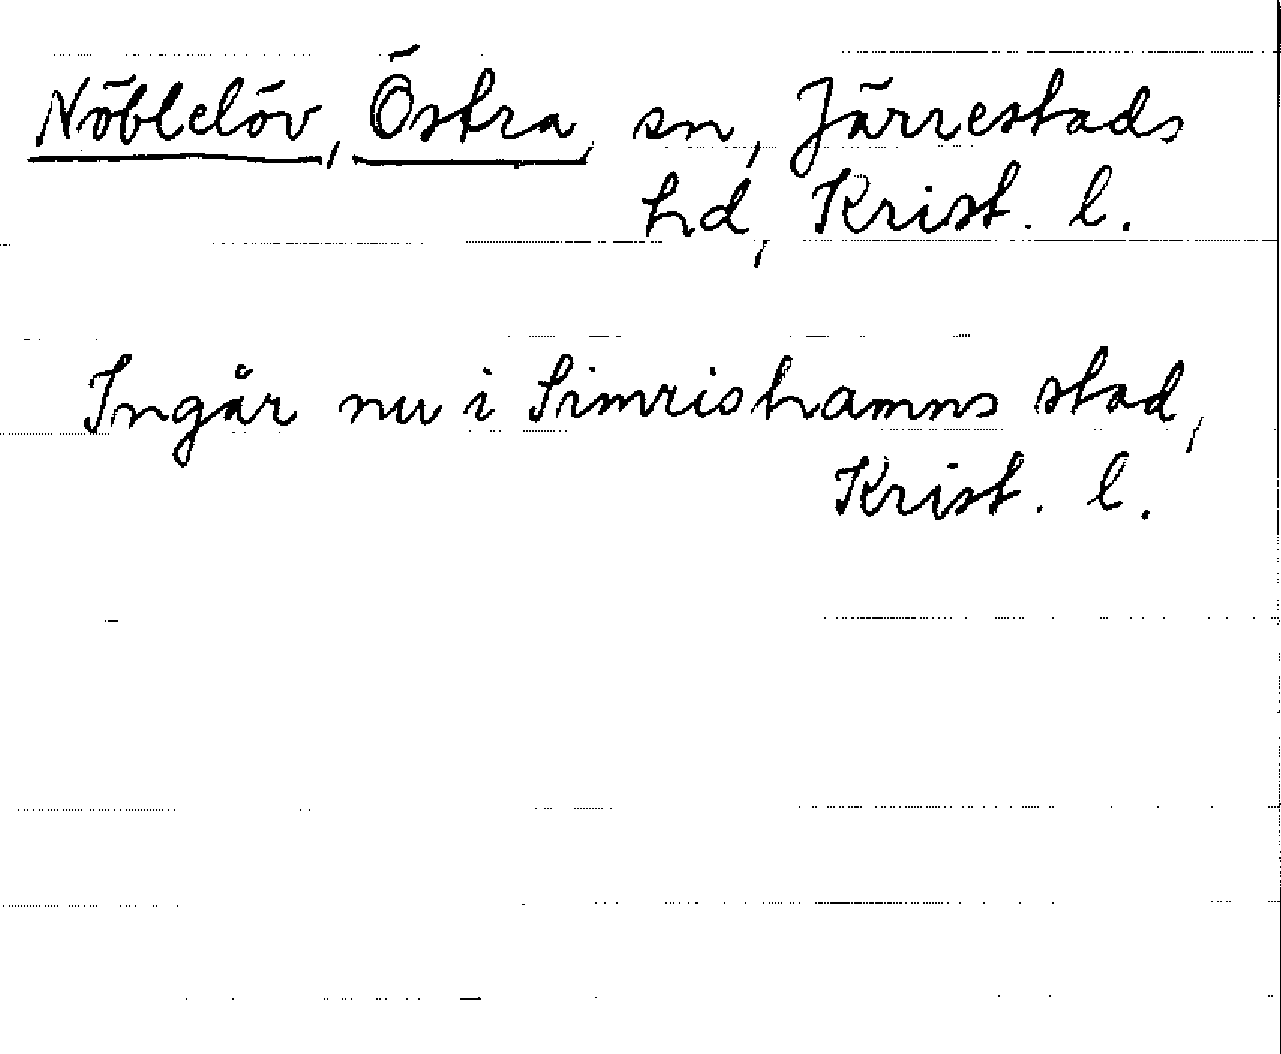 Nöbbelöv, Östra, sn, Järrestads
hd, Krist. l.
Ingår nu i Simrishamns stad,
Krist. l.